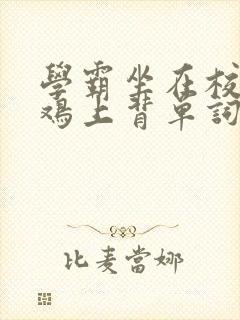 學霸坐在校
鸡上背單詞
比麦當娜